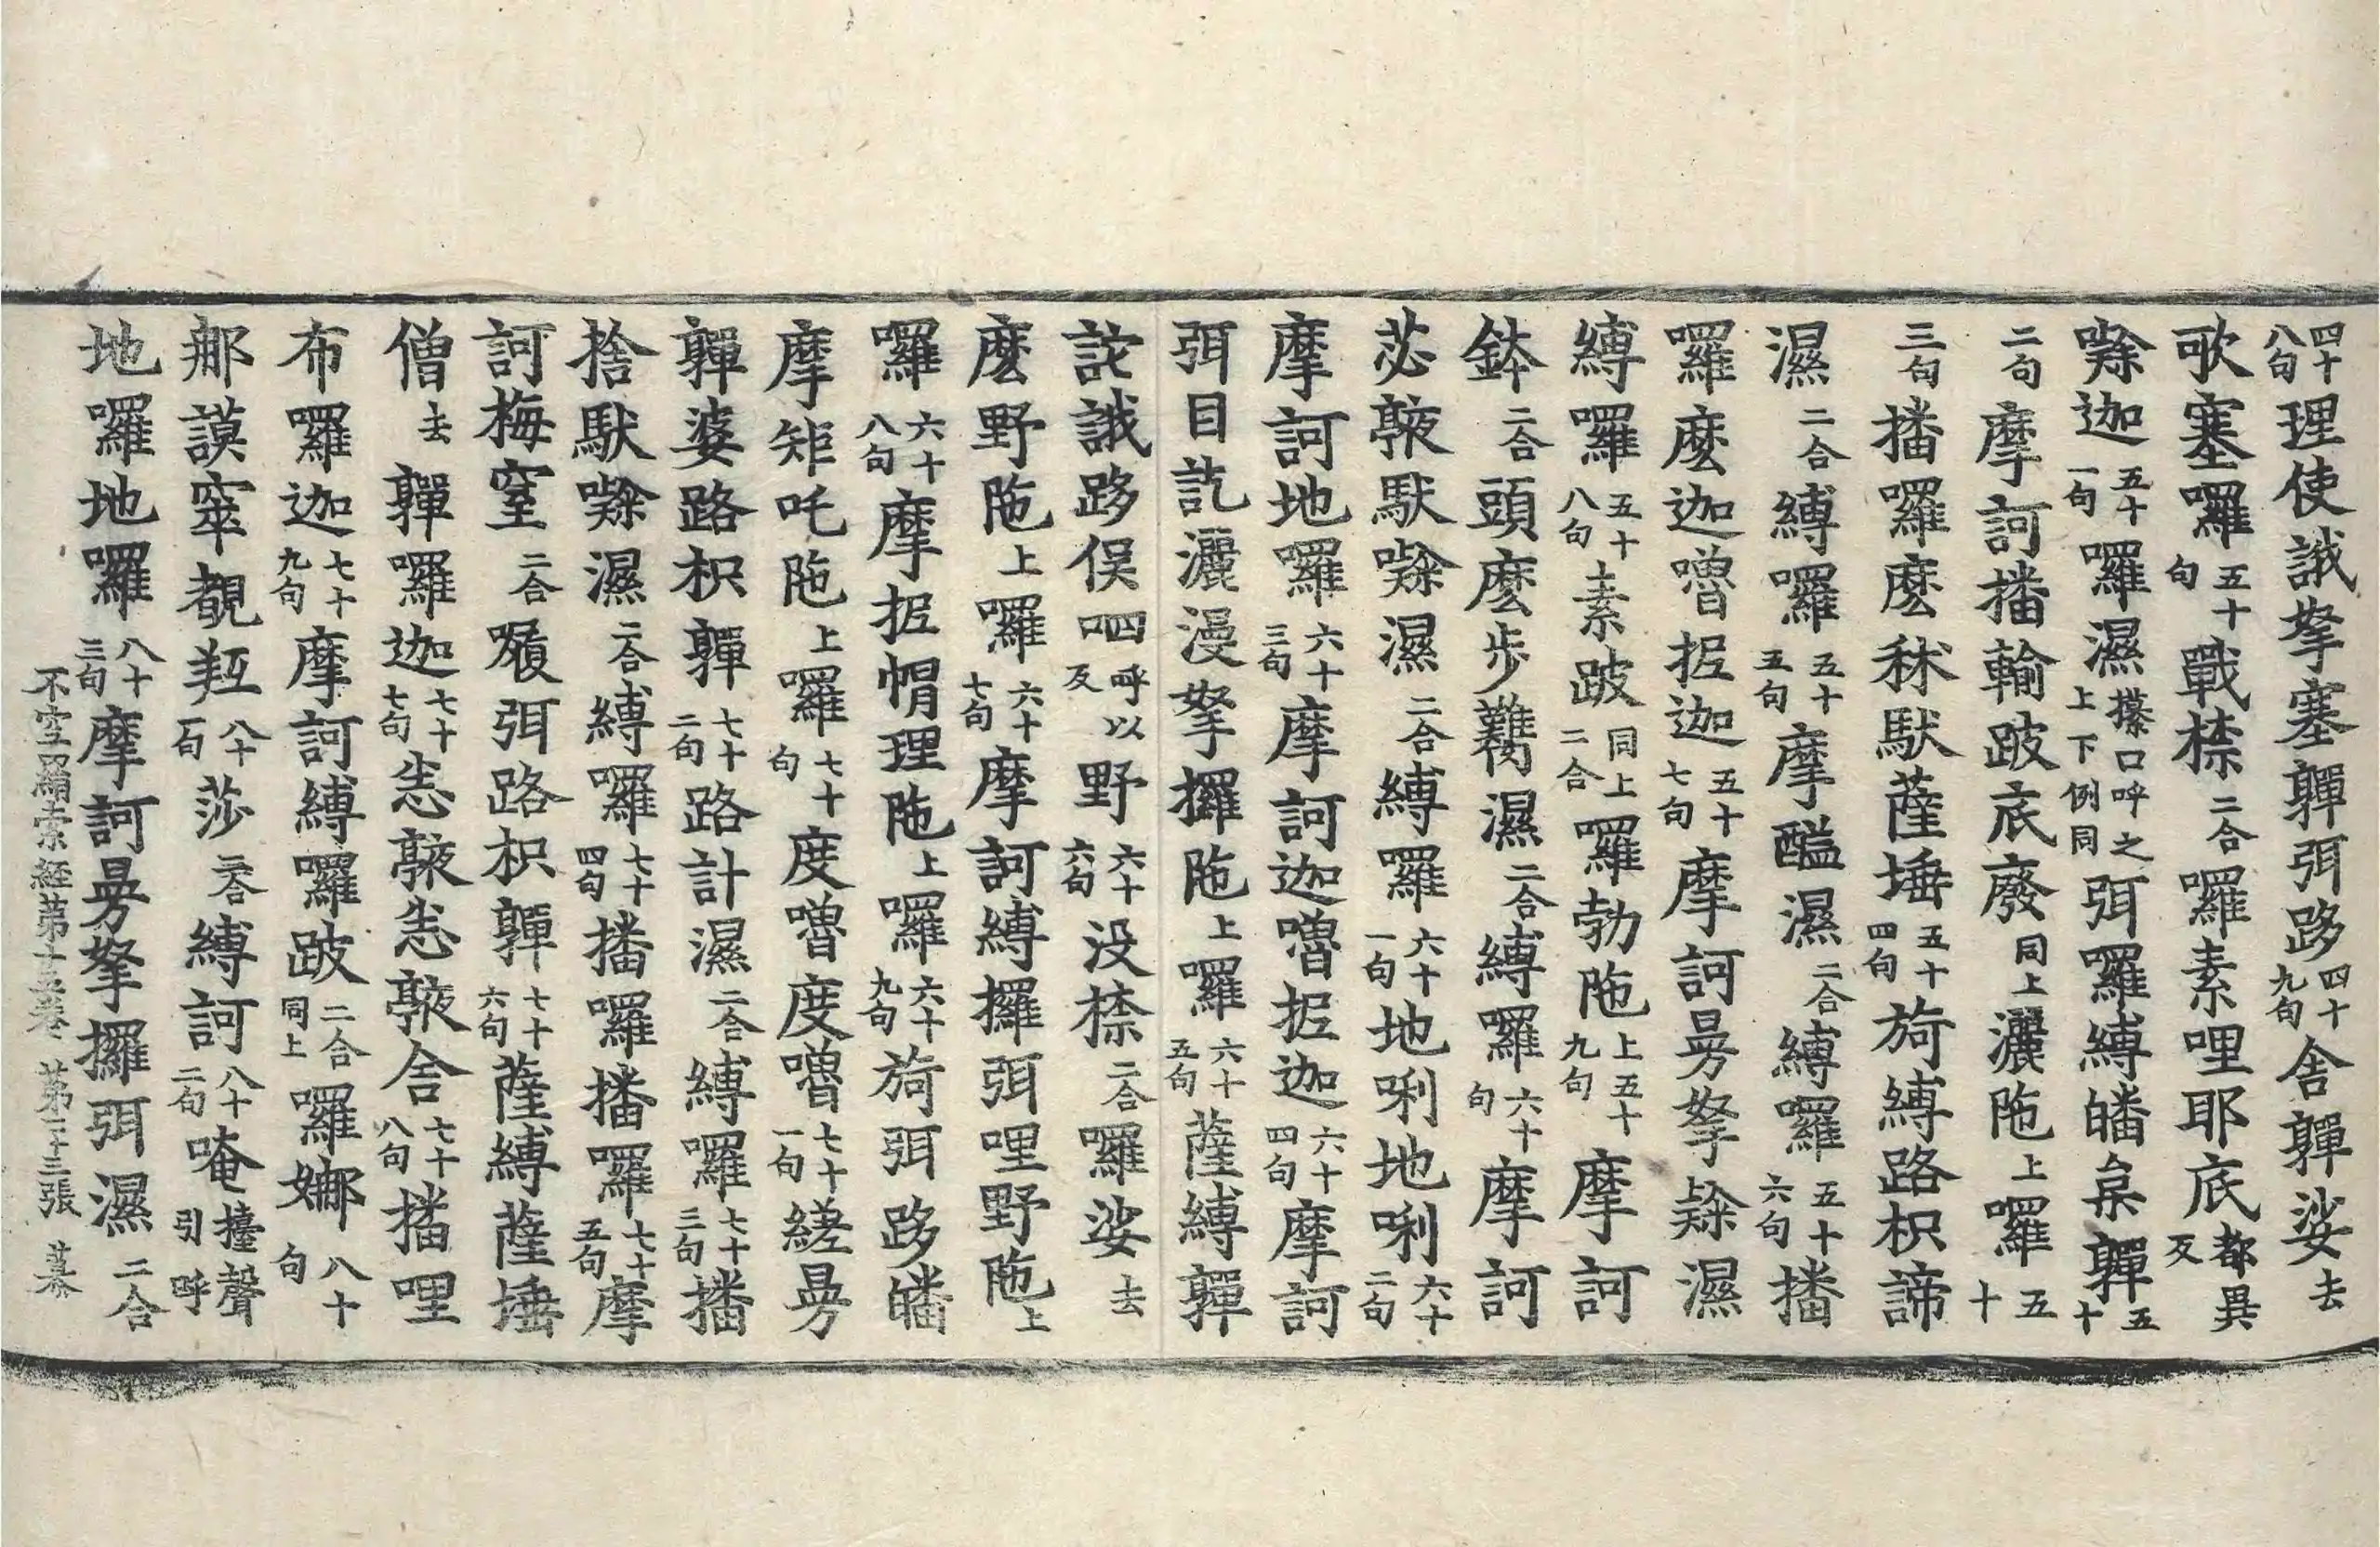 四十八句理使誐拏塞嚲弭跢四十九句舍嚲娑去
歌塞囉五十句戰㮈二合囉素哩耶底都異反
㗚迦五十一句囉濕㩧口呼之上下例同弭囉縛皤枲嚲五十
二句摩訶播輸跛底廢同上灑陁上囉五十
三句播囉麼秫馱薩埵五十四句旖縛路枳諦
濕二合縛囉五十五句摩醯濕二合縛囉五十六句播
囉麼迦嚕抳迦五十七句摩訶曼拏㗚濕
縛囉五十八句素跛同上二合囉勃陁上五十九句摩訶
鉢二合頭麼步濕二合縛囉六十句摩訶
苾㗚濕二合縛囉六十一句地唎地唎六十二句
摩訶地囉六十三句摩訶迦嚕抳迦六十四句摩訶
弭目訖灑漫拏攞陁上囉六十五句薩縛嚲
詑誐跢俁呬呼以反野六十六句没㮈二合囉娑去
麼野陁上囉六十七句摩訶縛攞弭哩野陁上
囉六十八句摩抳帽理陁上囉六十九句旖弭跢皤
摩矩吒陁上囉七十句度嚕度嚕七十一句縒曼
嚲婆路枳嚲七十二句路計濕二合縛囉七十三句播
捨馱㗚濕二合縛囉七十四句播囉播囉七十五句摩
訶梅窒二合㘑弭路枳嚲七十六句薩縛薩埵
僧去嚲囉迦七十七句舍七十八句播哩
布囉迦七十九句摩訶縛囉跛二合同上囉娜八十句
那謨窣覩羝八十一句莎二合縛訶八十二句唵擡聲引呼
地囉地囉八十三句摩訶曼拏攞弭濕二合
不空羂索經第十五卷 第二十三張 慕